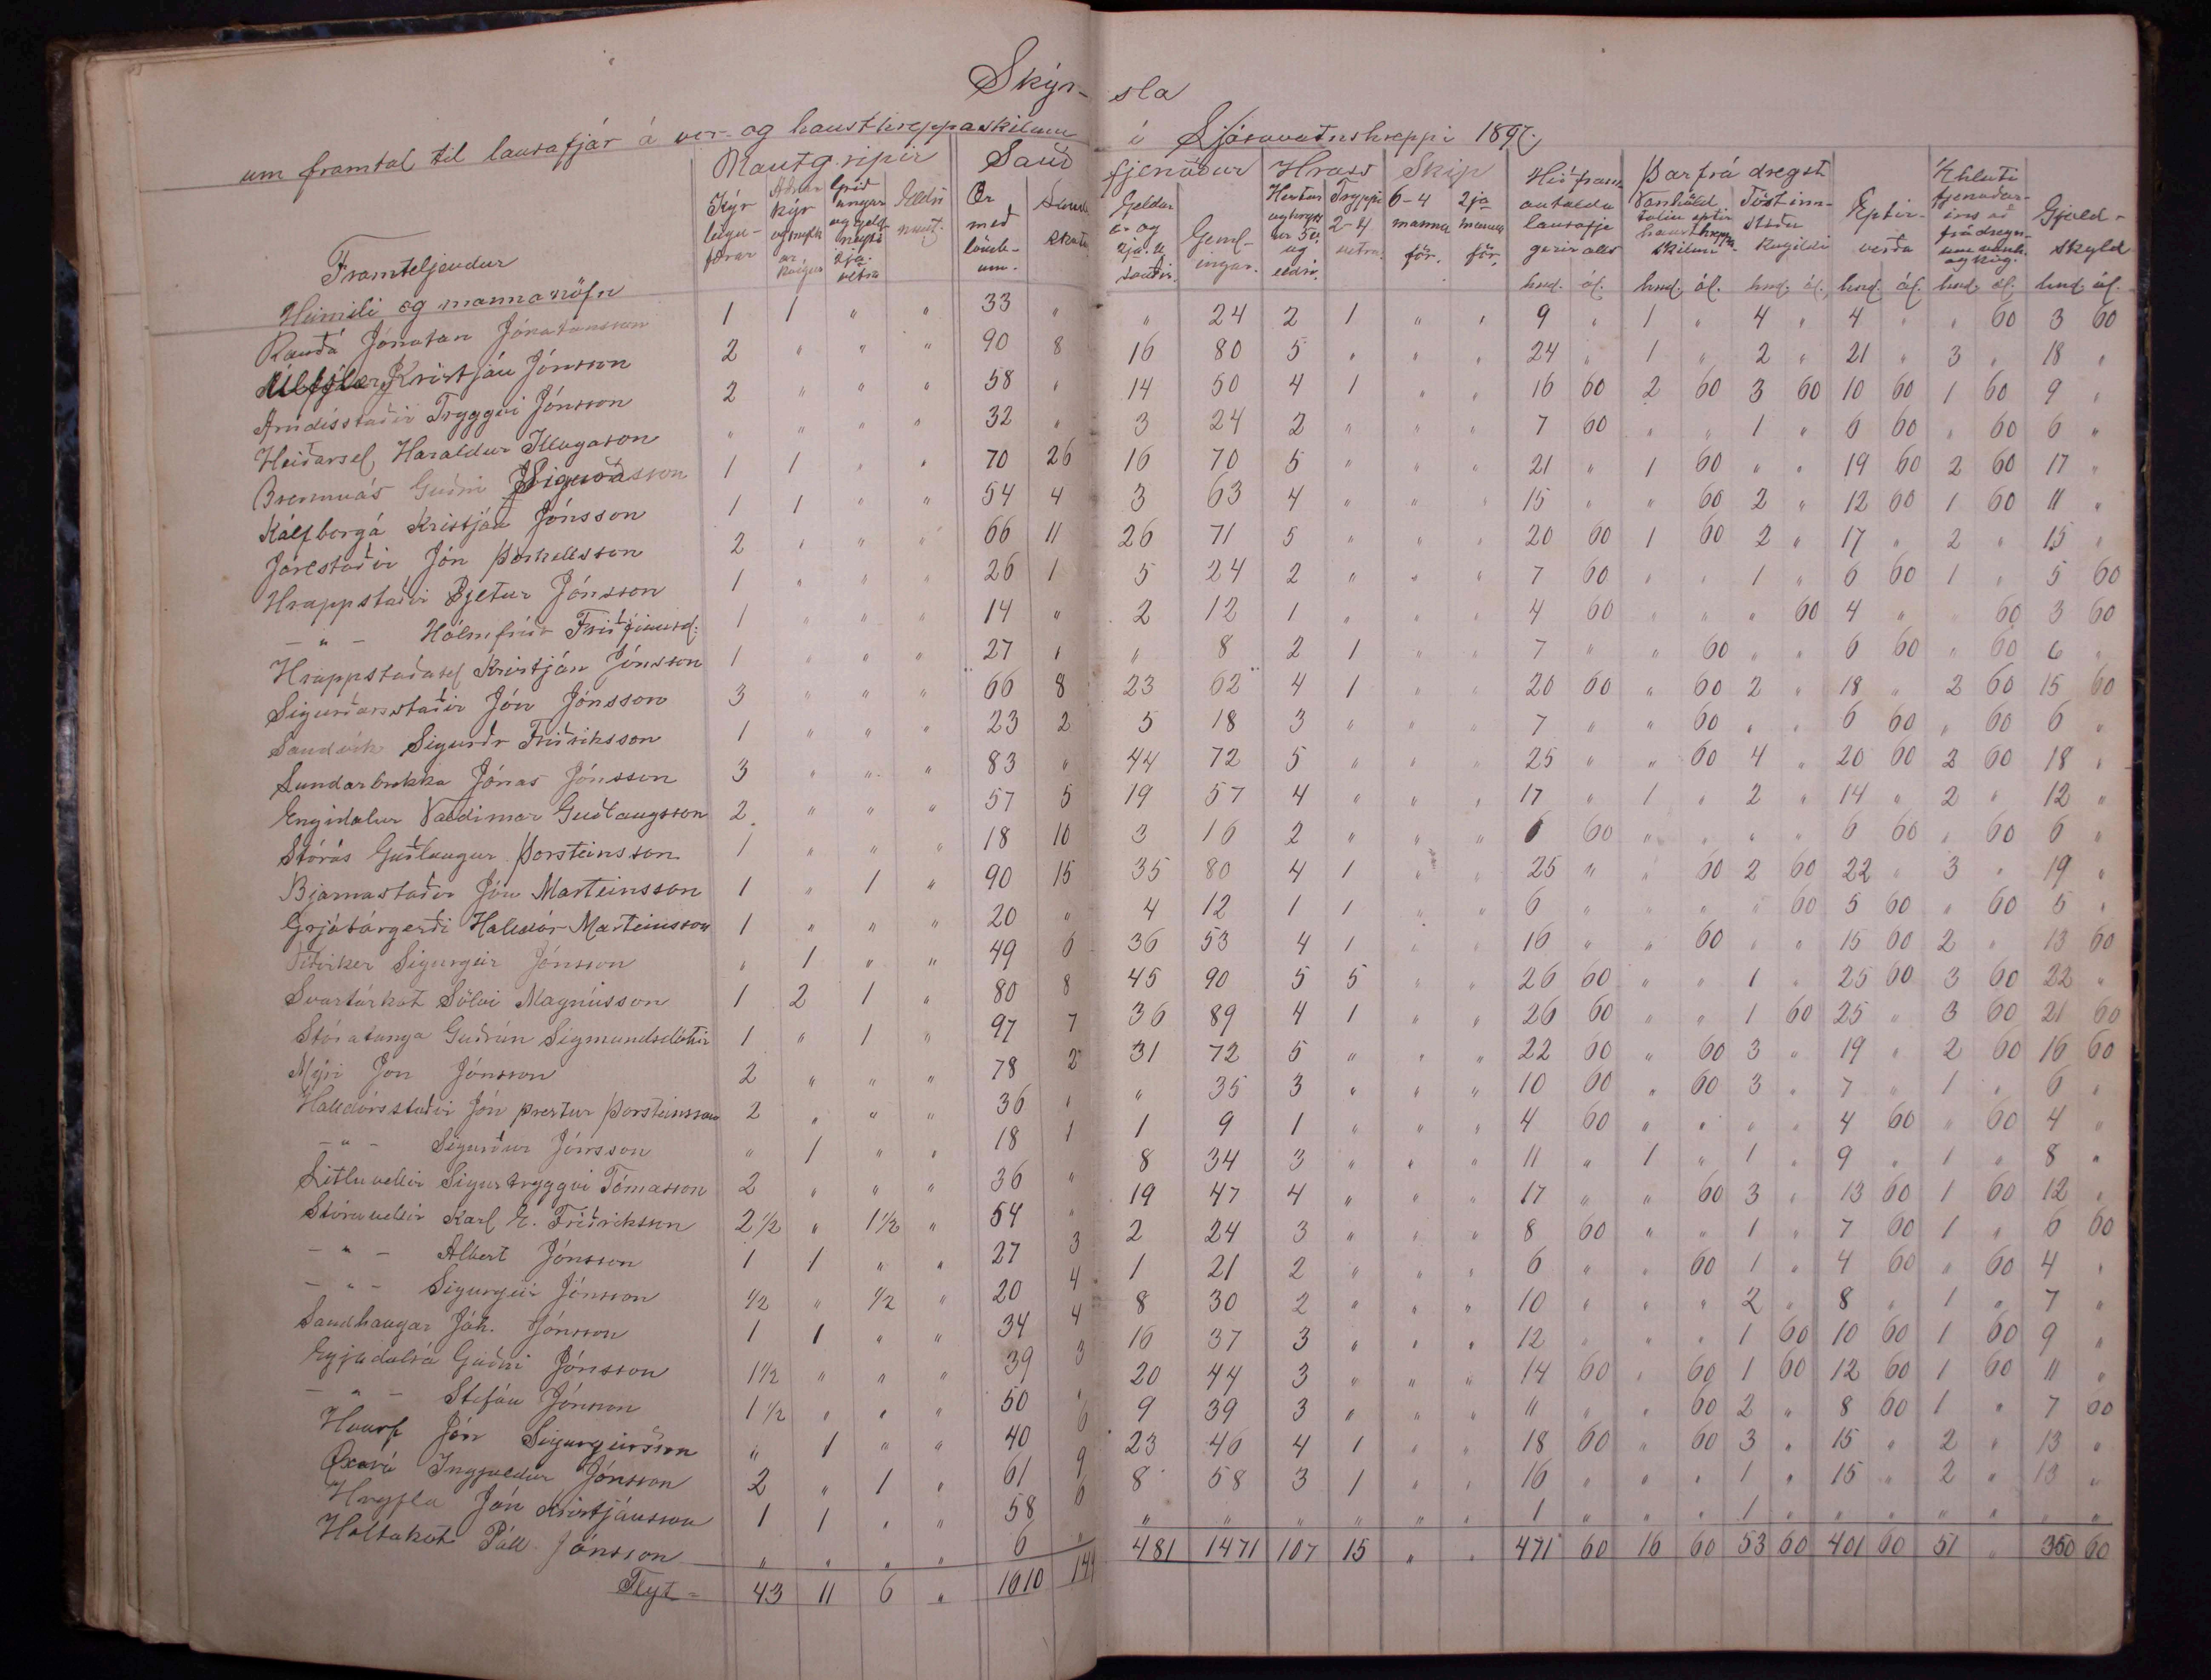 Skýr- sla
um framtal til lausafjár á vor- og hausthreppaskilum í Ljósavatnshreppi 1897.
Framteljendur Nautgripir Sauð fjenaður Hross Skip Hið fram- Þar frá dregst
Heimili og manna nöfn
hnd. ál. hnd. ál. hnd. ál. hnd. ál. hnd. ál. hnd. ál.
Rauðá Jónatan Jónatansson 1 1 " " 33 " " 24 2 1 " " 9 " 1 " 4 " 4 " " 60 3 60
Kristján Jónsson 2 " " " 90 8 16 80 5 " " " 24 " 1 " 2 " 21 " 3 " 18 "
Arndísstaðir Tryggvi Jónsson 2 " " " 58 " 14 50 4 1 " " 16 60 2 60 3 60 10 60 1 60 9 "
Heiðarsel Haraldur Illugason " " " " 32 " 3 24 2 " " " 7 60 " " 1 " 6 60 " 60 6 "
Brennuás Guðni 1 1 " " 70 26 16 70 5 " " " 21 " 1 60 " " 19 60 2 60 17 "
Kálfborgá Kristján Jónsson 1 1 " " 54 4 3 63 4 " " " 15 " " 60 2 " 12 60 1 60 11 "
Jarlstaðir Jón Þorkellsson 2 " " " 66 11 26 71 5 " " " 20 60 1 60 2 " 17 " 2 " 15 "
Hrappstaðir Pjetur Jónsson 1 " " " 26 1 5 24 2 " " " 7 60 " " 1 " 6 60 1 " 5 60
- " - Hólmfríður 1 " " " 14 " 2 12 1 " " " 4 60 " " " 60 4 " " 60 3 60
Hrappstaðasel Kristján Jónsson 1 " " " 27 " " 8 2 1 " " 7 " " 60 " " 6 60 " 60 6 "
Sigurðarstaðir Jón Jónsson 3 " " " 66 8 23 62 4 1 " " 20 60 " 60 2 " 18 " 2 60 15 60
Sandvík Sigurðr Friðriksson 1 " " " 23 2 5 18 3 " " " 7 " " 60 " " 6 60 " 60 6 "
Lundarbrekka Jónas Jónsson 3 " " " 83 " 44 72 5 " " " 25 " " 60 4 " 20 60 2 60 18 "
Engidalur Valdimar Guðlaugsson 2 " " " 57 5 19 57 4 " " " 17 " 1 " 2 " 14 " 2 " 12 "
Stórás Guðlaugur Þorsteinsson 1 " " " 18 10 3 16 2 " " " 6 60 " " " " 6 60 " 60 6 "
Bjarnastaðir Jón Marteinsson 1 " 1 " 90 15 35 80 4 1 " " 25 " " 60 2 60 22 " 3 " 19 "
Grjótárgerði Halldór Marteinsson 1 " " " 20 " 4 12 1 1 " " 6 " " " " 60 5 60 " 60 5 "
Víðirker Sigurgeir Jónsson " 1 " " 49 6 36 53 4 1 " " 16 " " 60 " " 15 60 2 " 13 60
Svartárkot Sölvi Magnússon 1 2 1 " 80 8 45 90 5 5 " " 26 60 " " 1 " 25 60 3 60 22 "
Stóratunga Guðrún Sigmundsdóttir 1 " 1 " 97 7 36 89 4 1 " " 26 60 " " 1 60 25 " 3 60 21 60
Mýri Jón Jónsson 2 " " " 78 2 31 72 5 " " " 22 60 " 60 3 " 19 " 2 60 16 60
Halldórsstaðir Jón prestur Þorsteinsson 2 " " " 36 " " 35 3 " " " 10 60 " 60 3 " 7 " 1 " 6 "
- " - Sigurður Jónsson " 1 " " 18 1 1 9 1 " " " 4 60 " " " " 4 60 " 60 4 "
Litluvellir Sigurtryggvi Tómasson 2 " " " 36 " 8 34 3 " " " 11 " 1 " 1 " 9 " 1 " 8 "
Stóruvellir Karl E. Friðriksson 2 1/2 " 1 1/2 " 54 " 19 47 4 " " " 17 " " 60 3 " 13 60 1 60 12 "
- " - Albert Jónsson 1 1 " " 27 3 2 24 3 " " " 8 60 " " 1 " 7 60 1 " 6 60
- " - Sigurgeir Jónsson 1/2 " 1/2 " 20 4 1 21 2 " " " 6 " " 60 1 " 4 60 " 60 4 "
Sandhaugar Jóh. Jónsson 1 1 " " 34 4 8 30 2 " " " 10 " " " 2 " 8 " 1 " 7 "
Eyjadalsá Guðni Jónsson 1 1/2 " " " 39 3 16 37 3 " " " 12 " " " 1 60 10 60 1 60 9 "
- " - Stefán Jónsson 1 1/2 " " " 50 " 20 44 3 " " " 14 60 " 60 1 60 12 60 1 60 11 "
Hvarf Jón Sigurgeirsson " 1 " " 40 6 9 39 3 " " " 11 " " 60 2 " 8 60 1 " 7 60
Öxará Ingjaldur Jónsson 2 " 1 " 61 9 23 46 4 1 " " 18 60 " 60 3 " 15 " 2 " 13 "
Hryfla Jón Kristjánsson 1 1 " " 58 6 8 58 3 1 " " 16 " " " 1 " 15 " 2 " 13 "
Holtakot Páll Jónsson " " " " 6 " " " " " " " 1 " " " 1 " " " " " " "
Flyt = 43 11 6 " 1610 481 1471 107 15 " " 471 60 16 60 53 60 401 60 51 " 350 60